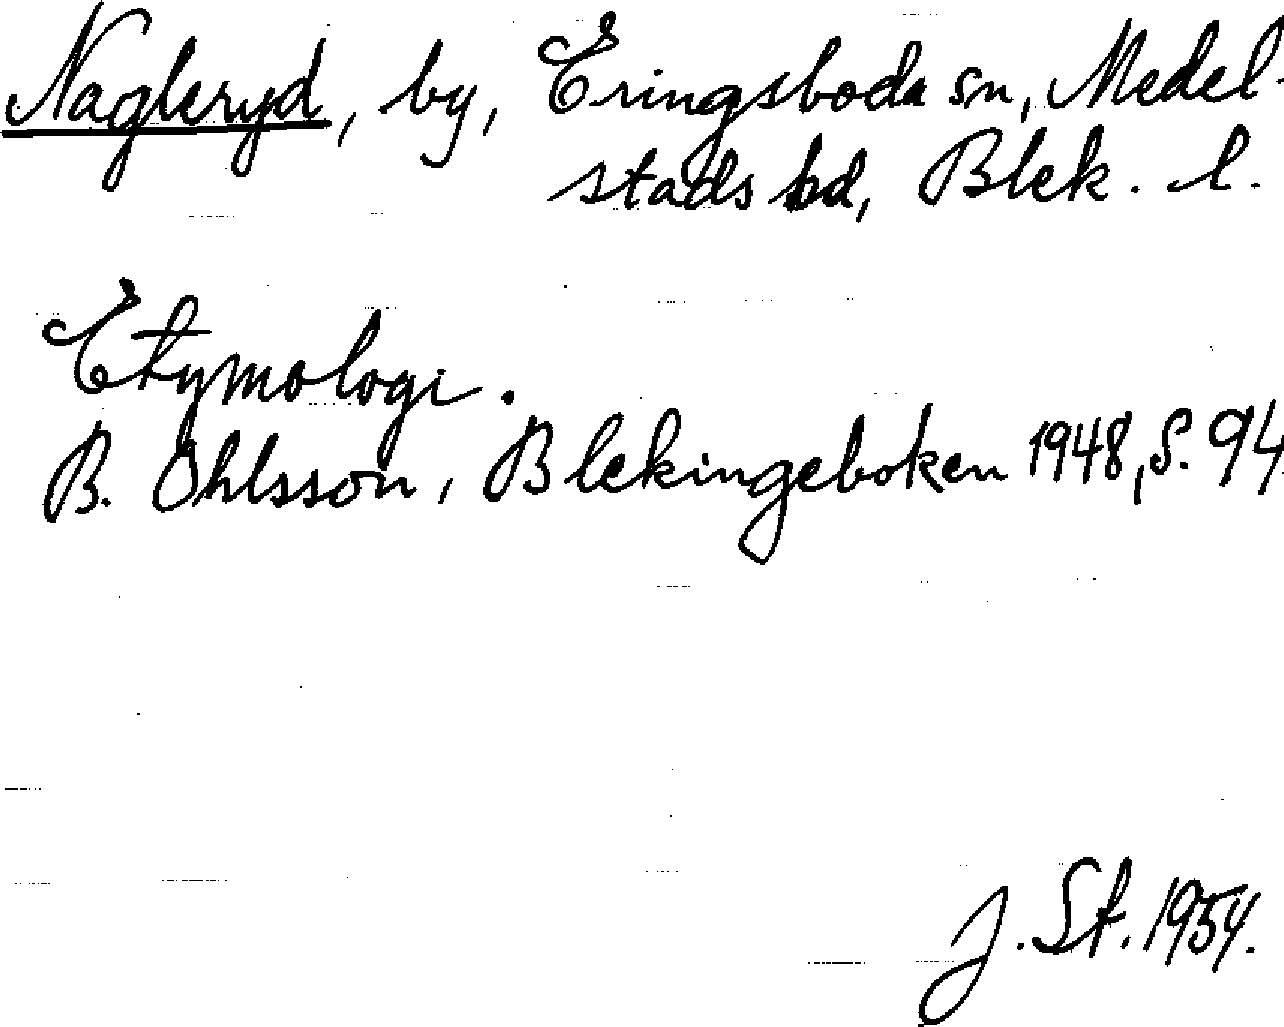 Nagleryd, by, Eringsboda sn, Medel-
stads hd, Blek. l.
Etymologi.
B. Ohlsson, Blekingeboken 1948, S. 94.
J. St. 1954.